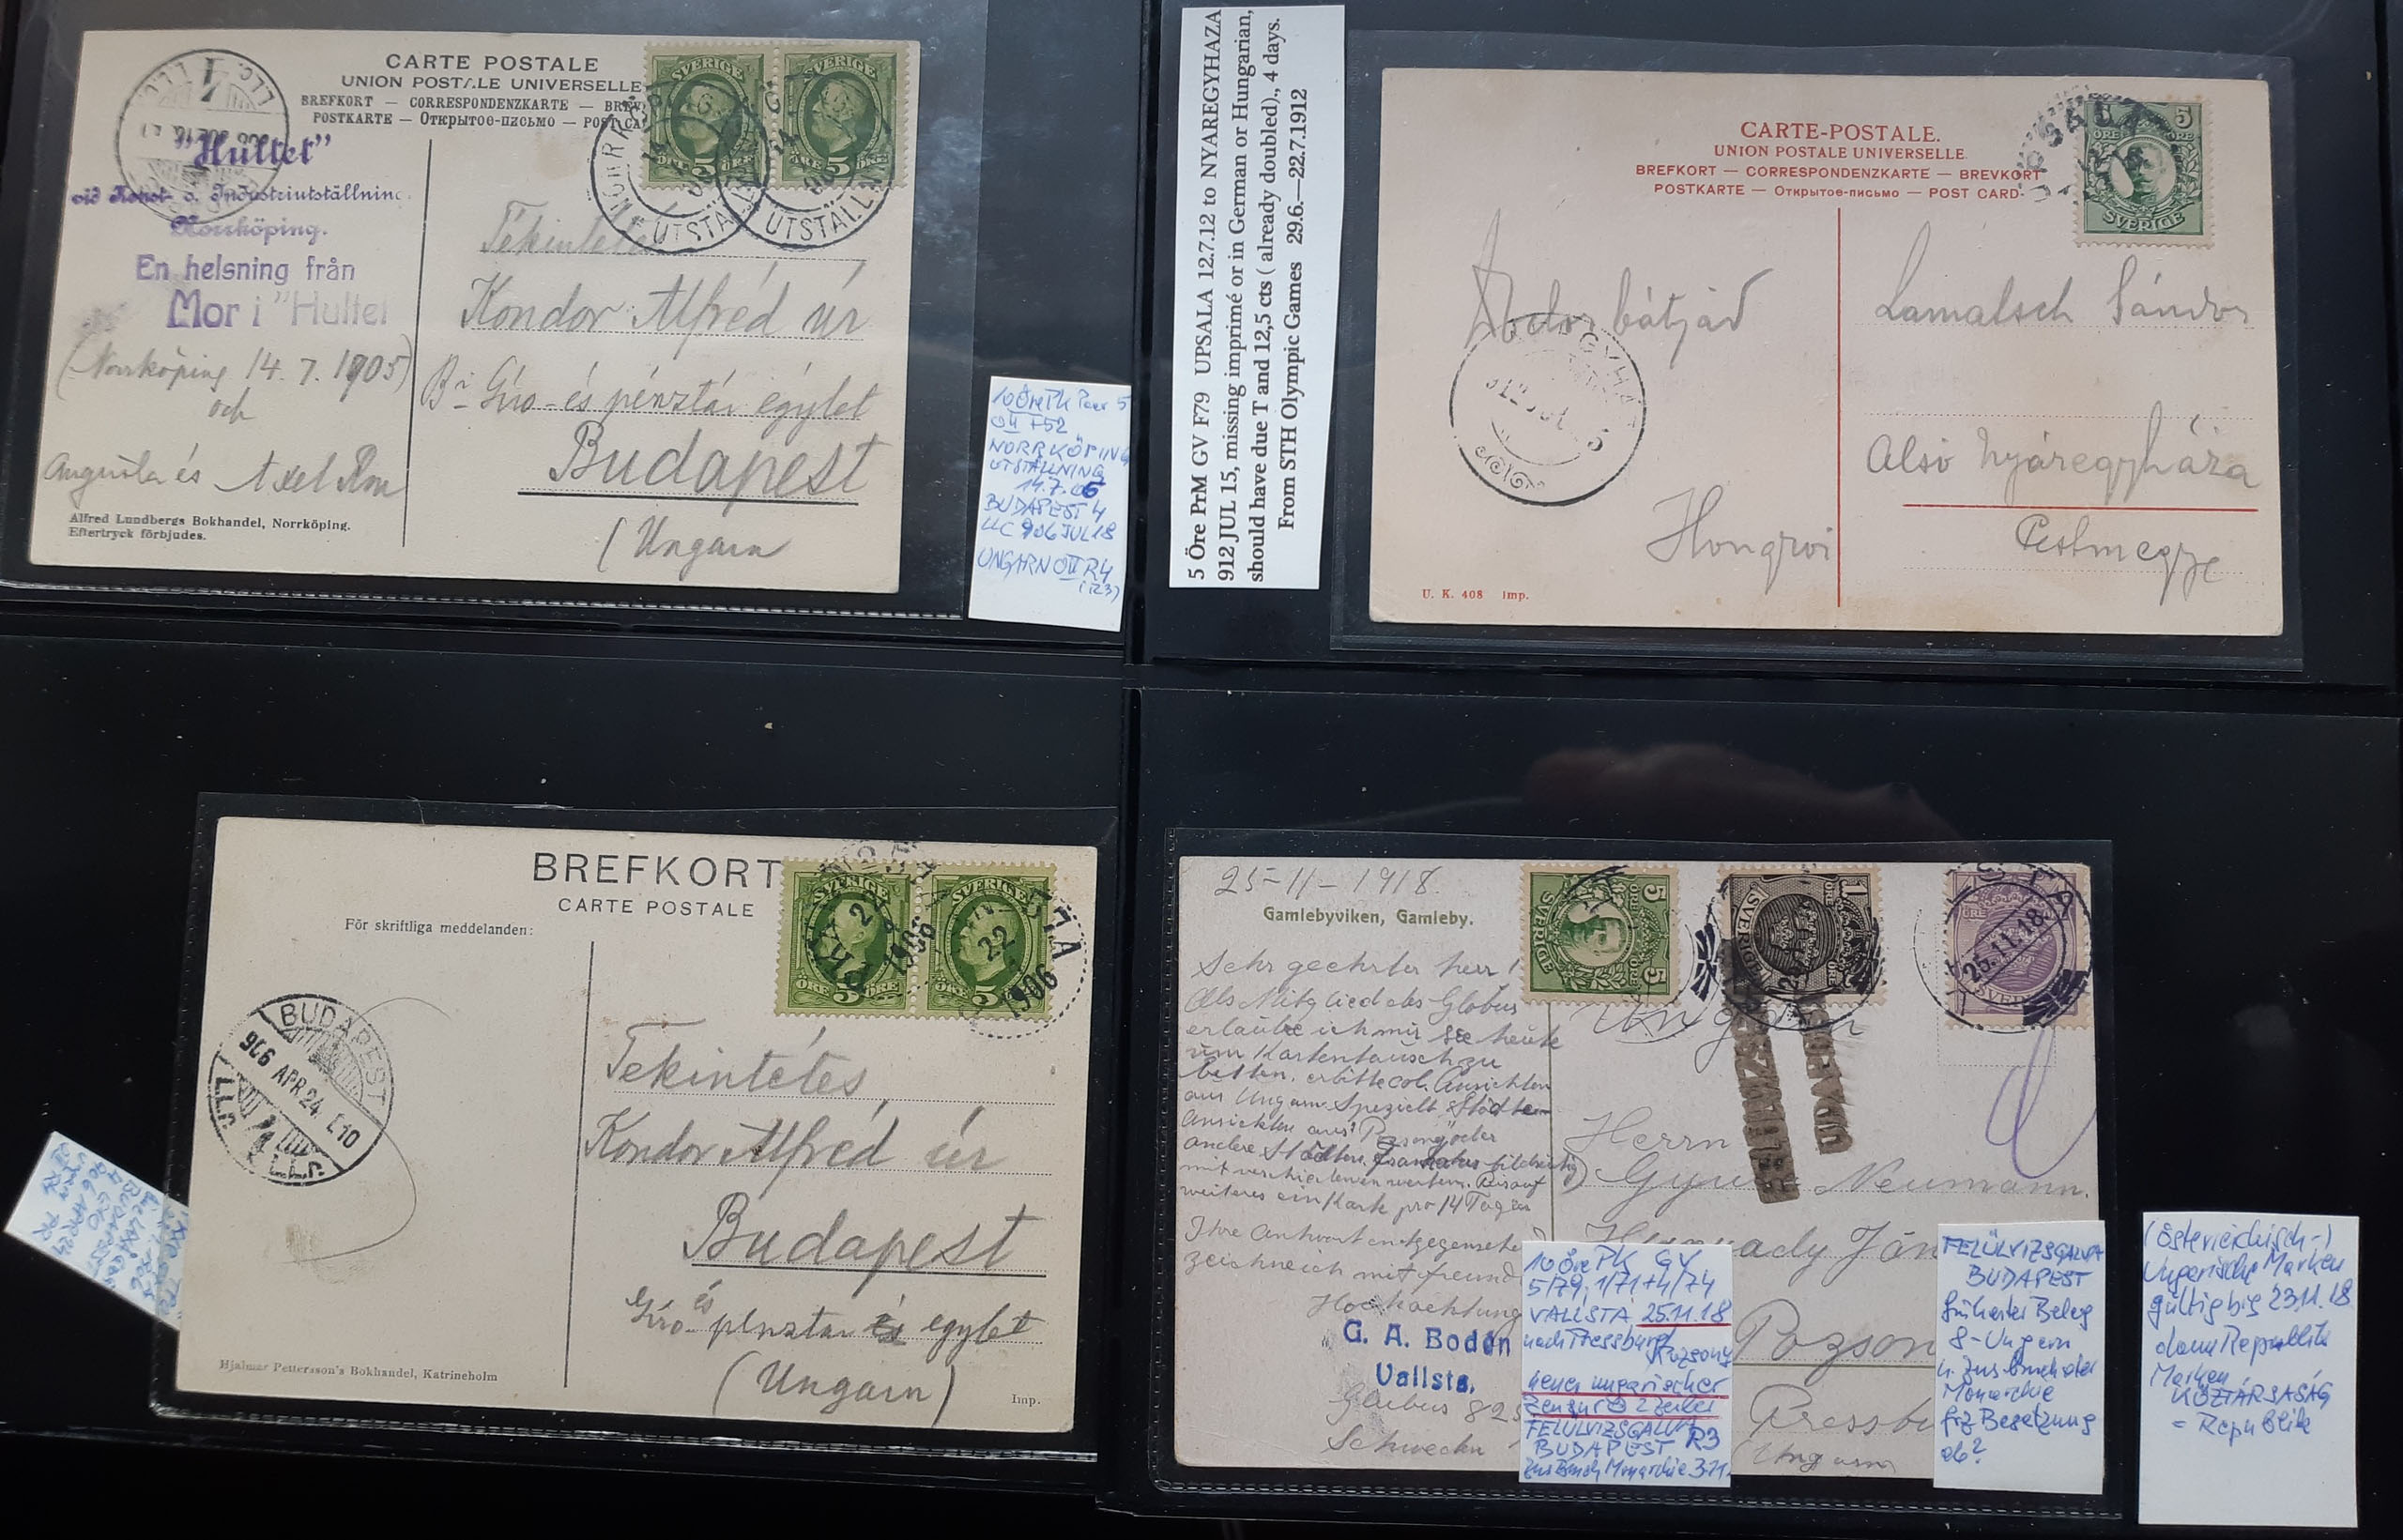 CARTE POSTALE
UNION POSTALE UNIVERSELLE
BREFKORT — CORRESPONDENZKARTE — BREV
POSTKARTE — Открытое-письмо — POST CA
SVERIGE SVERIGE
5 ÖRE
NORRKÖPING
UTSTÄLLN
UTSTÄLLN
"Hultet"
vid Konst- o. Industriutställning.
Norrköping.
En helsning från
Mor i "Hultet
(Norrköping 14. 7. 1905)
och
Augusta és Axel
Alfred Lundbergs Bokhandel, Norrköping.
Eftertryck förbjudes.
Tekintetes
Kondor Alfréd úr
Bp. Giro- és pénztár egylet
Budapest
(Ungarn
10 Öre Pk Paar 5
OII F52
NORRKÖPING
UTSTÄLLNING
14.7.06
BUDAPEST 4
LLC 906 JUL 18
UNGARN OII R4
(R3)
5 Öre PrM GV F79 UPSALA 12.7.12 to NYAREGYHAZA
912 JUL 15, missing imprimé or in German or Hungarian,
should have due T and 12,5 cts ( already doubled)., 4 days.
From 5TH Olympic Games 29.6.—22.7.1912
CARTE-POSTALE.
UNION POSTALE UNIVERSELLE
BREFKORT — CORRESPONDENZKARTE — BREVKORT
POSTKARTE — Открытое-письмо — POST CARD
5 5
ÖRE ÖRE
SVERIGE
Andor bátyád
Lamatsch Sándor
Alsó Nyáregyháza
Pestmegye
Hongroi
U. K. 408 Imp.
BREFKORT
CARTE POSTALE
För skriftliga meddelanden:
SVERIGE SVERIGE
ÖRE 5 ÖRE
22
1906
1906
BUDAPEST
906 APR 24. E10
Tekintetes
Kondor Alfréd úr
Budapest
Giro- és pénztár egylet
(Ungarn)
Hjalmar Pettersson's Bokhandel, Katrineholm
Imp.
25-11-1918.
Gamlebyviken, Gamleby.
5 5
SVERIGE
25.11.18
Sehr geehrter Herr!
Als Mitglied des Globus
erlaube ich mir Sie heute
um Kartentausch zu
bitten. erbitte col. Ansichten
aus Ungarn Spezielt Städte-
ansichten aus Pozsony oder
andere Städten
weiteres ein Karte pro 14 Tagen
Ihre Antwort entgegensehe
zeichne ich mit freund
Hochachtung
G. A. Bodén
Vallsta,
Globus 825
Schweden
Ungarn
FELÜLVIZSGÁLVA
BUDAPEST
Herrn
Gyula Neumann.
Hunyady Ján
Pozson
Pressbu
(Ungarn
10 Öre PK GV
5/79, 1/71+4/74
VALLSTA 25.11.18
nach Pressburg/
Pozsony
neuer ungarischer
Zensur 2 Zeiler
FELÜLVIZSGALVA
BUDAPEST R3
FELÜLVIZSGALVA
BUDAPEST
frühester Beleg
S-Ungarn
n. Zusbruch der
Monarchie
frz Besetzung
ab?
(Österreichisch-)
Ungarische Marken
gültig bis 23.11.18
dann Republik
Marken
KÖZTÁRSASÁG
= Republik